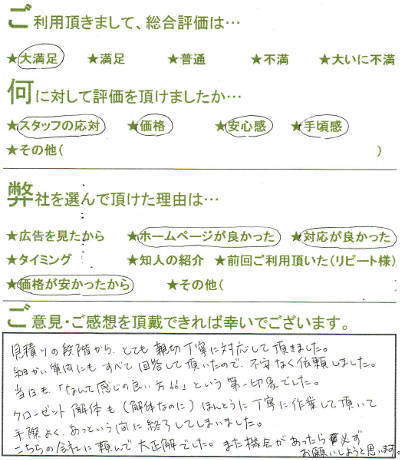 ご利用頂きまして、総合評価は…
★大満足 ★満足 ★普通 ★不満 ★大いに不満
何に対して評価を頂けましたか…
★スタッフの応対 ★価格 ★安心感 ★手頃感
★その他( )
弊社を選んで頂けた理由は…
★広告を見たから ★ホームページが良かった ★対応が良かった
★タイミング ★知人の紹介 ★前回ご利用頂いた(リピート様)
★価格が安かったから ★その他(
ご意見・ご感想を頂戴できれば幸いでございます。
見積りの段階から、とても親切丁寧に対応して頂きました。
細かい質問にも すべて回答して頂いたので、不安なく依頼しました。
当日も、「なんて感じの良い方々」という第一印象でした。
クローゼット解体も(解体なのに)ほんとうに丁寧に作業して頂いて
手際よく、あっという間に終了してしまいました。
こちらの会社に頼んで大正解でした。また機会があったら是必ず
お願いしようと思います。